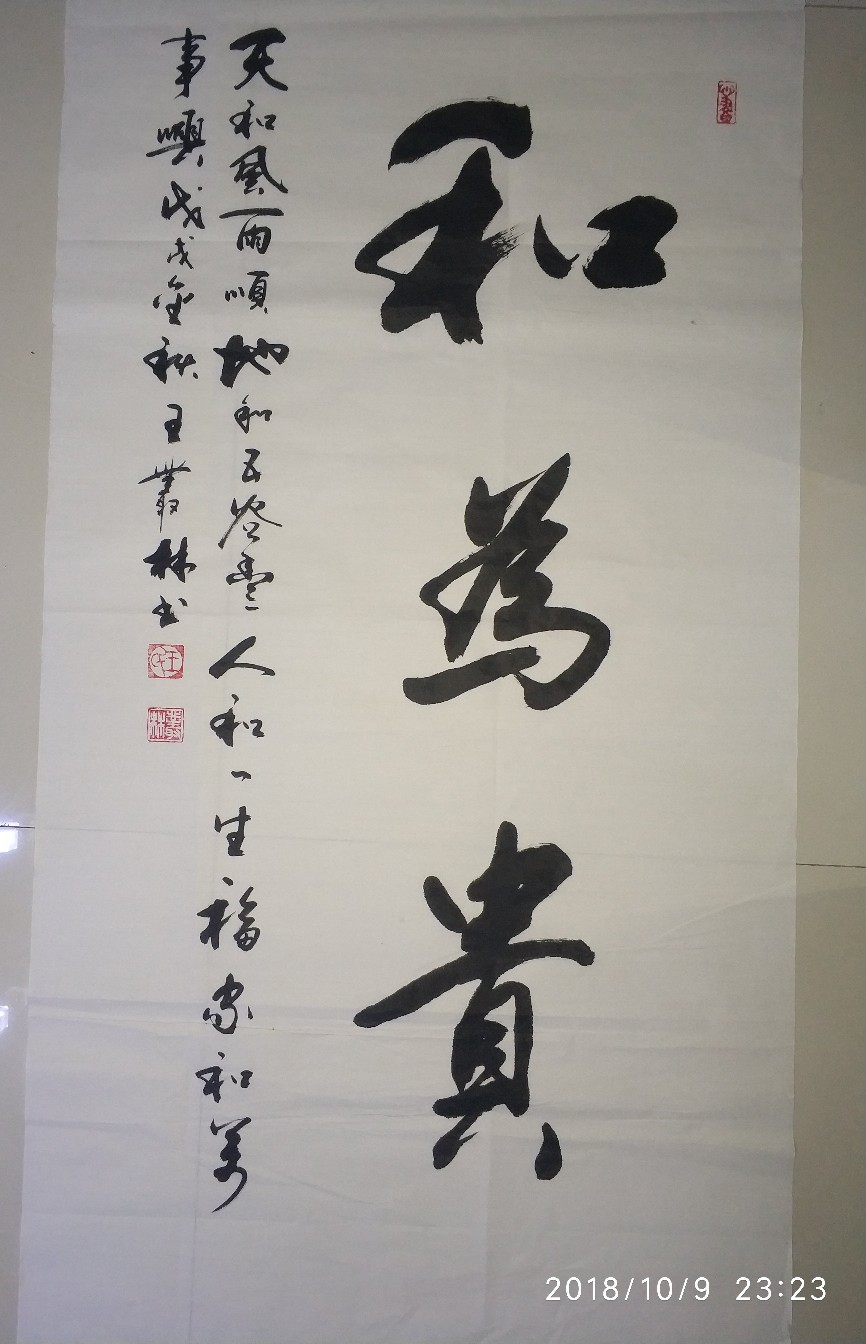 和為貴
天和風雨順地和五谷豐人和一生福家和萬
事興戊戌金秋王叢林书
王氏
叢林
2018/10/9 23:23